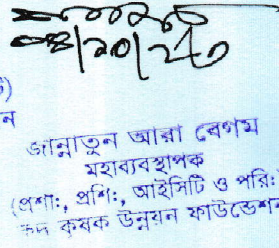 ন
জান্নাতুন আরা বেগম
মহাব্যবস্থাপক
(প্রশাঃ, প্রশিঃ, আইসিটি ও পরিঃ
কৃষক উন্নয়ন ফাউন্ডেশন